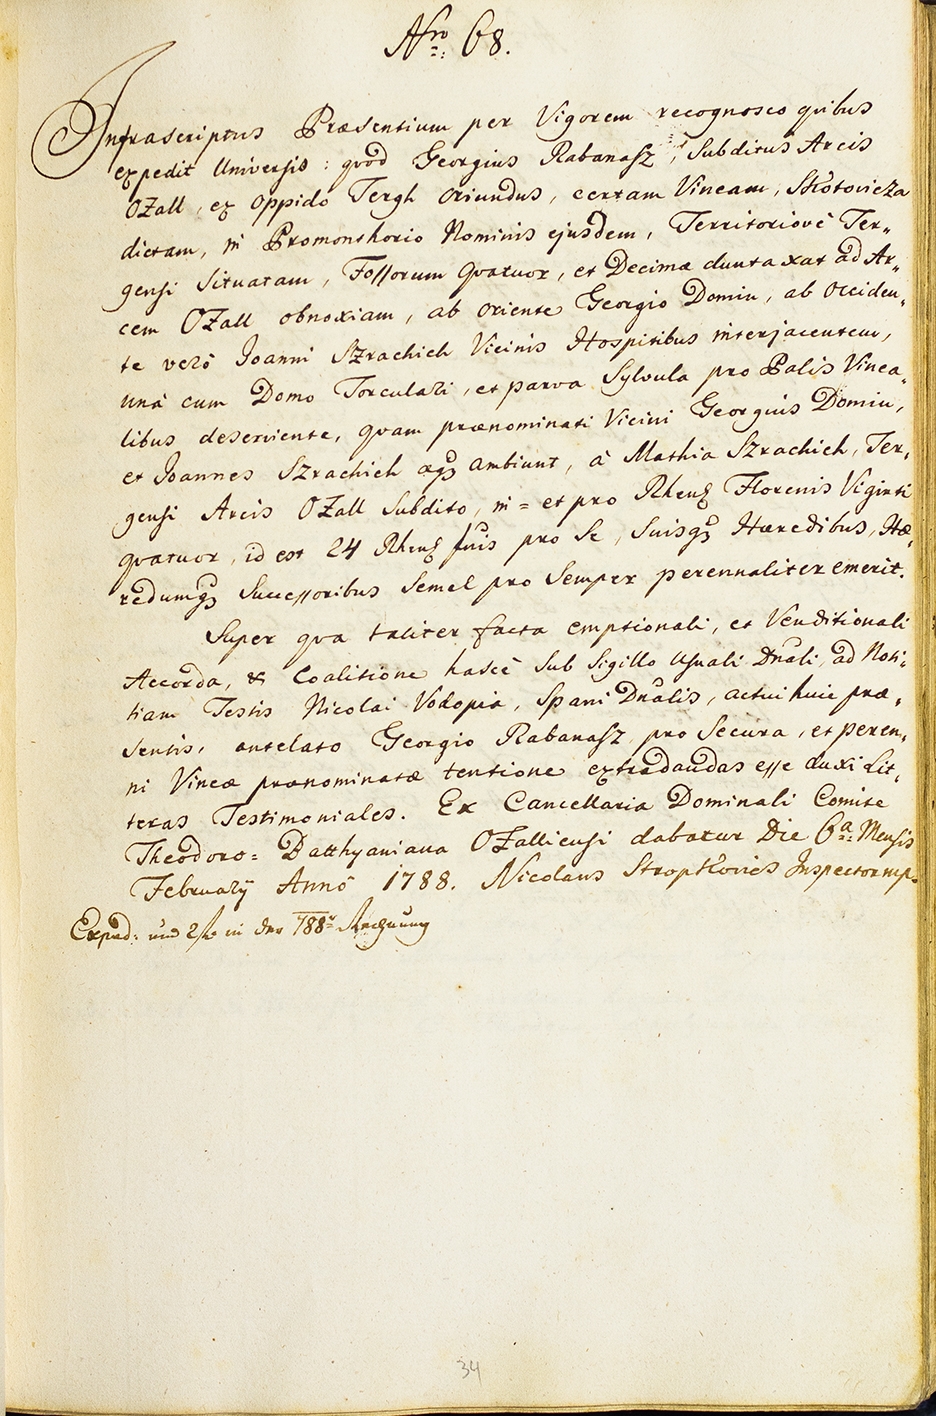 Nro 68.
Infrascriptus Præsentium per Vigorem recognosco quibus
expedit Universis: quod Georgius Rabanasz, Subditus Arcis
OZall, ex Oppido Tergh Oriundus, certam Vineam,
dictam, in Promonthorio Nominis ejusdem, Territoriovè Ter„
gensi Situatam, Fossorum Quatuor, et Decimæ duntaxat ad Ar„
cem OZall obnoxiam, ab Oriente Georgio Domin, ab Occiden„
te verò Joanni Szrachich Vicinis Hospitibus interjacentem,
unà cum Domo Torculari, et parva Sylvula pro Palis Vinea„
libus deserviente, quam prænominati Vicini Georgius Domin,
et Joannes Szrachich æqs ambiunt, à Mathia Szrachich, Ter„
gensi Arcis OZall Subdito, in = et pro Rhens Florenis Viginti
quatuor, id est 24 Rhens fnis pro Se, Suisqs Hæredibus, Hæ„
redumqs Successoribus Semel pro Semper perennaliter emerit.
Super qua taliter facta emptionali, et Venditionali
Accorda, & Coalitione hascè Sub Sigillo Usuali Dnali, ad Noti„
tiam Testis Nicolai Vodopia, Spani Dnalis, actui huic præ„
sentis, antelato Georgio Rabanasz pro Secura, et peren„
ni Vineæ prænominatæ tentione extradandas esse duxi Lit„
teras Testimoniales. Ex Cancellaria Dominali Comite
Theodoro = Batthyaniana OZalliensi dabatur Die 6a: Mensis
Februarÿ Annô 1788. Nicolaus Inspector mp.
Exped: und in der 788r Rechnung
34